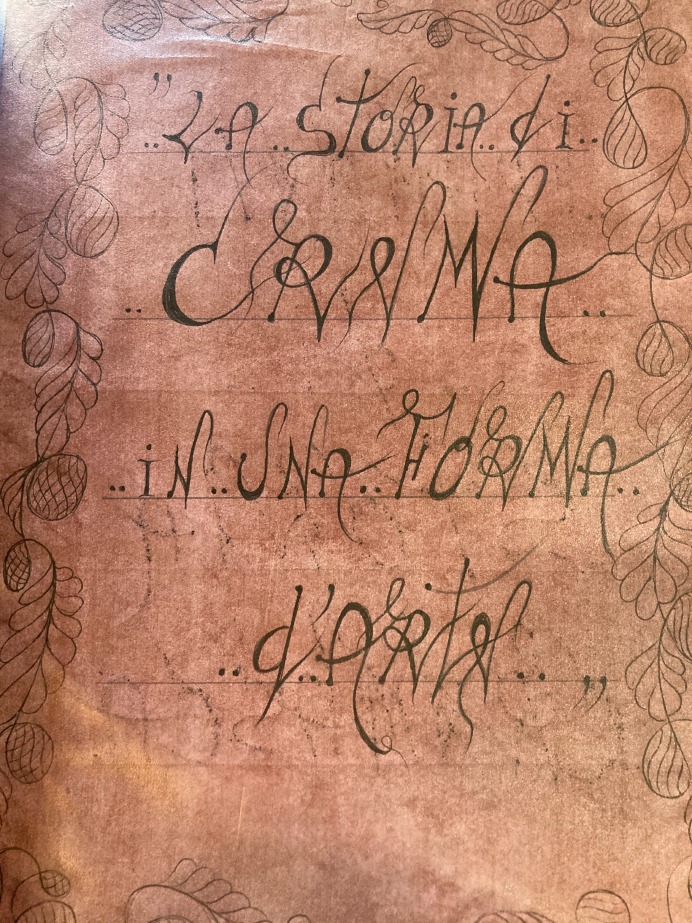 "LA STORIA di
CREMA
iN UNA FORMA
d'ARTE"